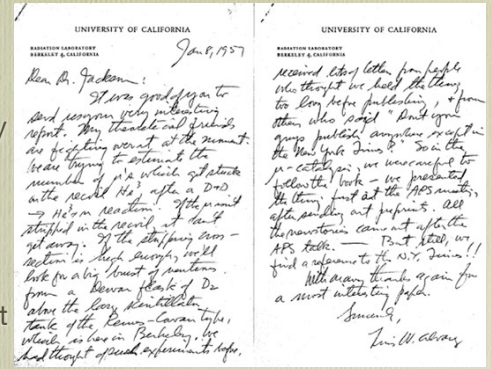 UNIVERSITY OF CALIFORNIA
RADIATION LABORATORY
BERKELEY 4, CALIFORNIA
Jan 8, 1957
Dear Dr. Jackson:
It was good of you to
send us your very interesting
report. My theoretical friends
are fighting over it at the moment.
We are trying to estimate the
number of μ's which get stuck
on the recoil He³, after a D+D
→ He³+n reaction. If the μ isn't
stripped in the recoil, it can't
get away. If the stripping cross-
section is high enough, we'll
look for a big burst of neutrons
from a Dewar flask of D₂
above the big scintillator
tank of the Reines-Cowan type,
which is here in Berkeley. We
had thought of such experiments before,
UNIVERSITY OF CALIFORNIA
RADIATION LABORATORY
BERKELEY 4, CALIFORNIA
received lots of letters from people
who thought we held the thing
too long before publishing, & from
others who said "Don't you
guys publish anywhere except in
the New York Times?" So in the
μ-catalysis, we were careful to
follow the book – we presented
the thing first at the APS meeting,
after sending out preprints. All
the news stories came out after the
APS talk. — But still, we
find a reference to the N.Y. Times!!
With many thanks again for
a most interesting paper.
Sincerely,
Luis W. Alvarez